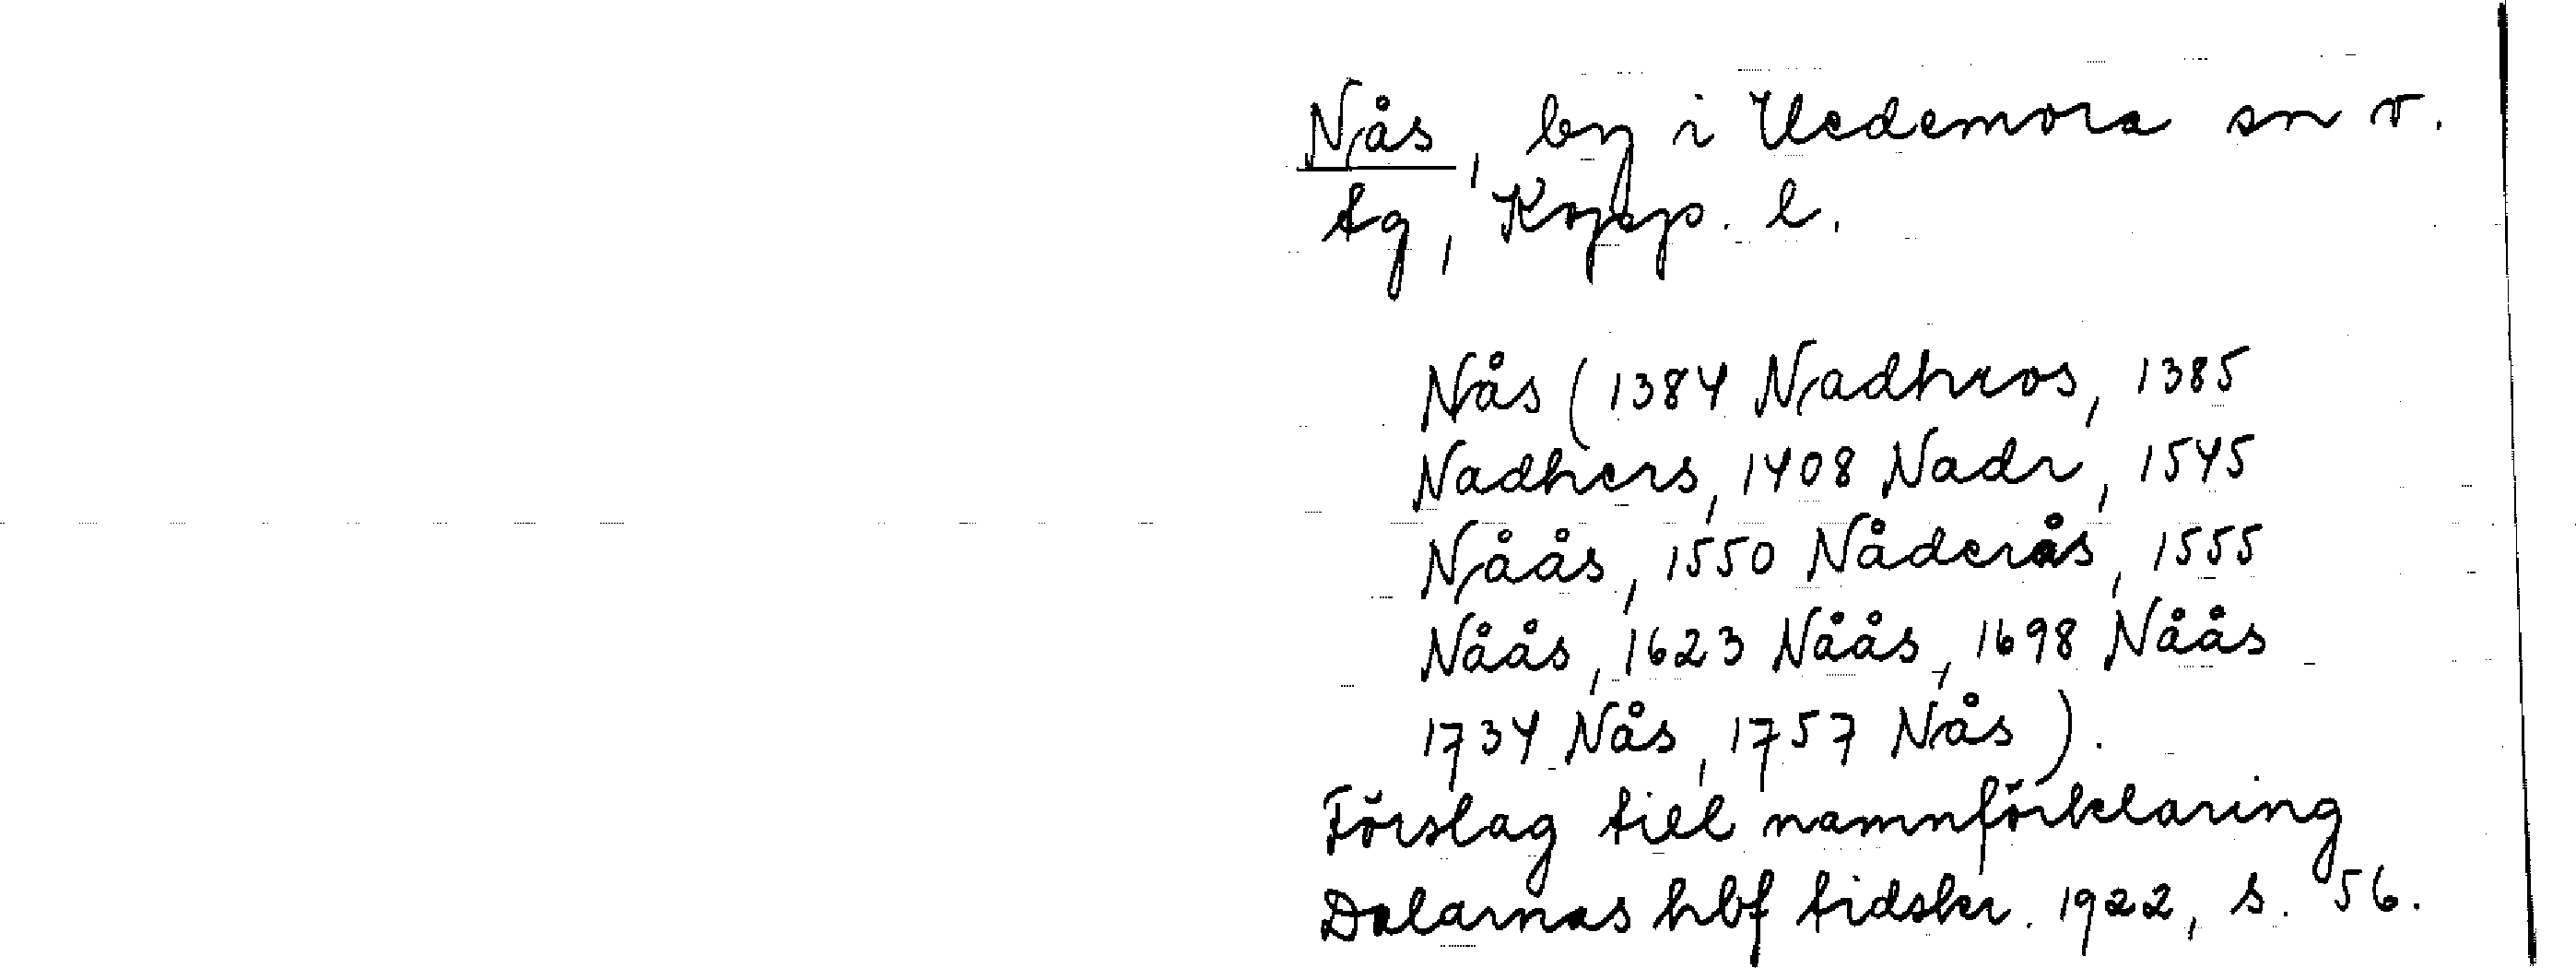 Nås, by i Hedemora sn o.
tg, Kopp. l.
Nås (1384 Nadhros, 1385
Nadhers, 1408 Nadr, 1545
Nåås, 1550 Nåderås, 1555
Nåås, 1623 Nåås, 1698 Nåås
1734 Nås, 1757 Nås).
Förslag till namnförklaring
Dalarnas hbf tidskr. 1922, s. 56.